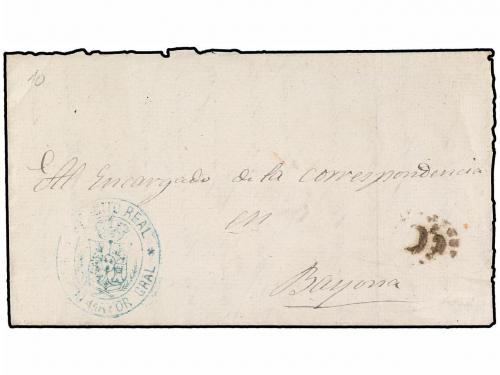 10
Al Encargado de la Correspondencia
en
Bayona
REAL
GRAL